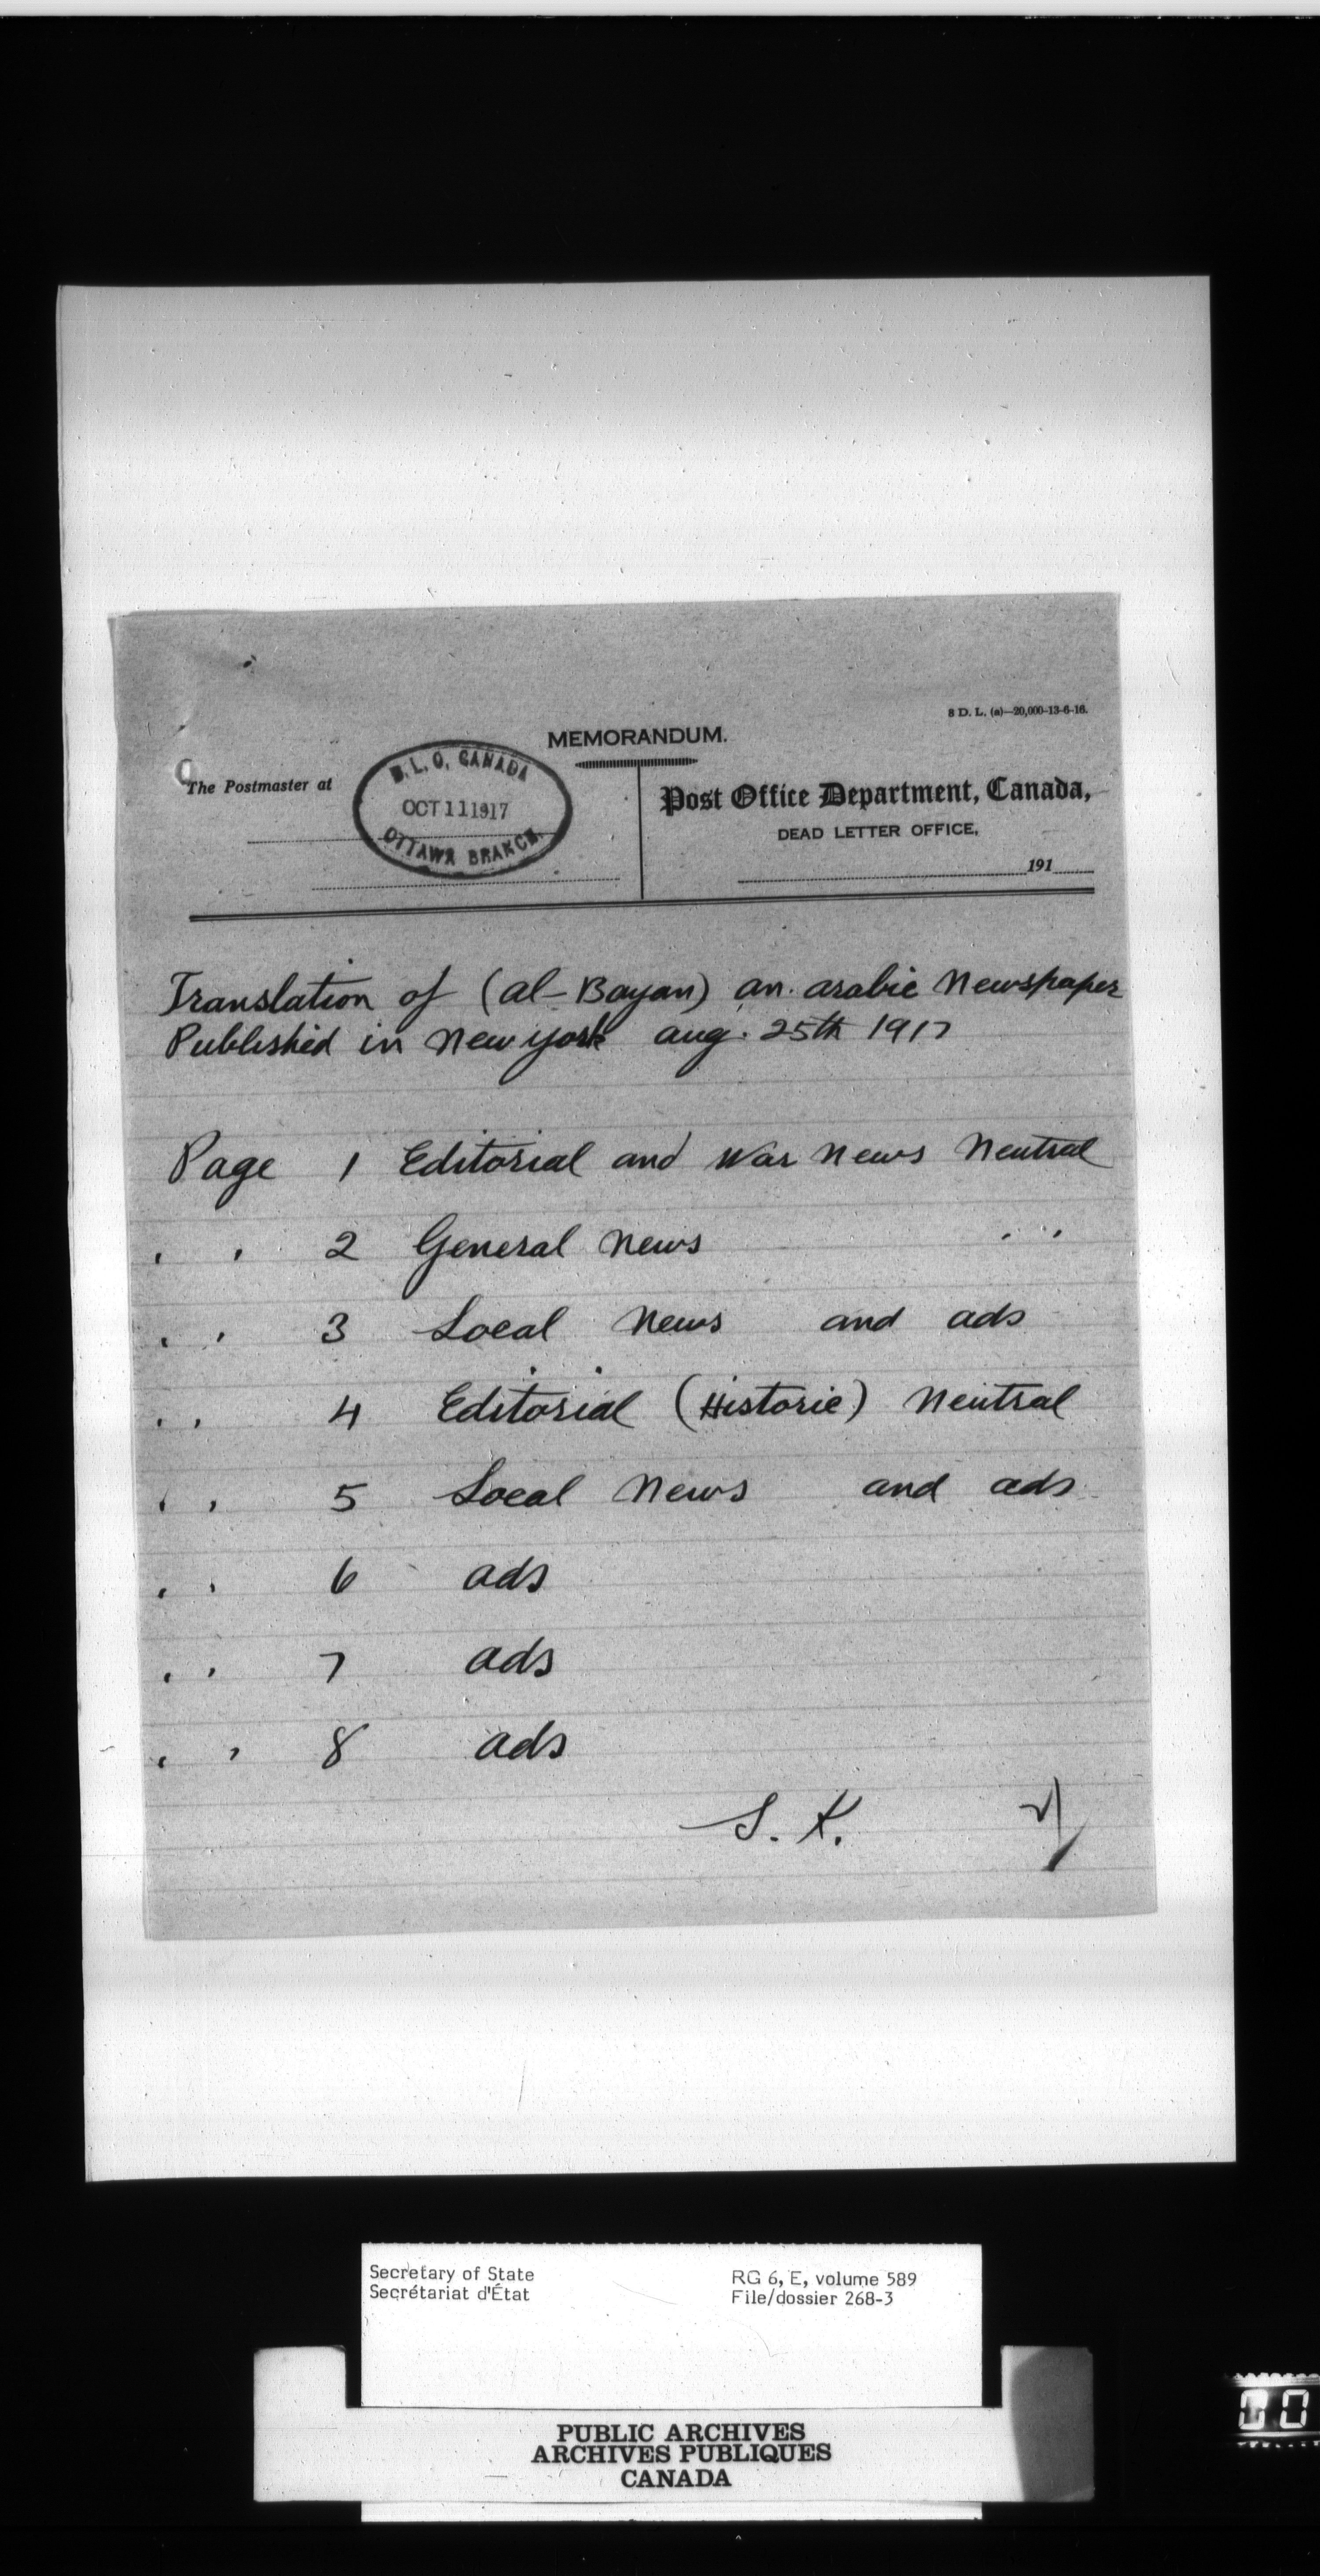 8 D. L. (a)—20,000-13-6-16.
MEMORANDUM.
The Postmaster at
D. L. O. CANADA
OCT 11 1917
OTTAWA BRANCH
Post Office Department, Canada,
DEAD LETTER OFFICE,
191
Translation of (al-Bayan) an arabic Newspaper
Published in New york aug. 25th 1917
Page 1 Editorial and War News Neutral
" 2 General News "
" 3 Local News and ads
" 4 Editorial (Historic) Neutral
" 5 Local News and ads
" 6 ads
" 7 ads
" 8 ads
S. K.
Secretary of State
Secrétariat d'État
RG 6, E, volume 589
File/dossier 268-3
PUBLIC ARCHIVES
ARCHIVES PUBLIQUES
CANADA